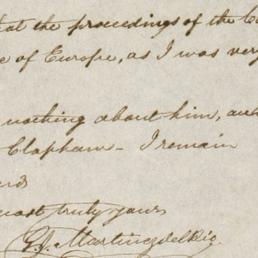 at the proceedings of the
e of Europe, as I was very
nothing about him, and
Clapham – I remain
most truly yours
Martinez del Rio.